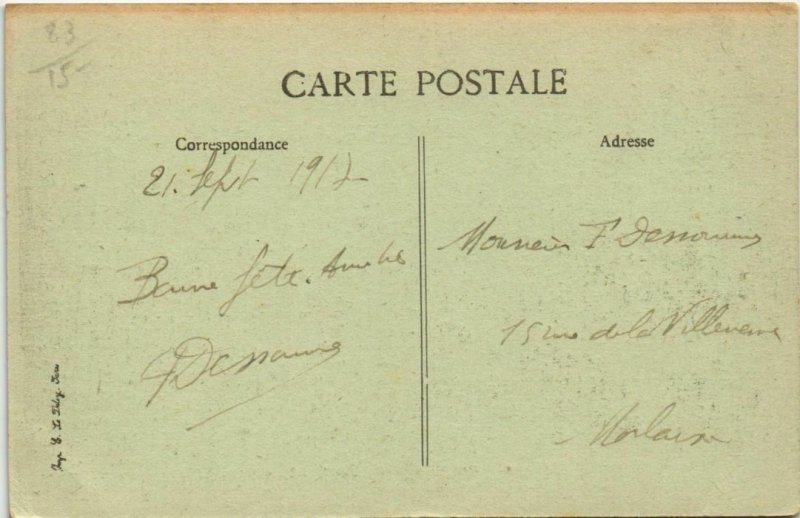 83
15-
CARTE POSTALE
Correspondance
Adresse
21. Sept 1917
Bonne fête. Amitiés
Monsieur F Dessoumes
15 rue de la Villeneuve
Morlaix
Imp. E. Le Deley, Paris